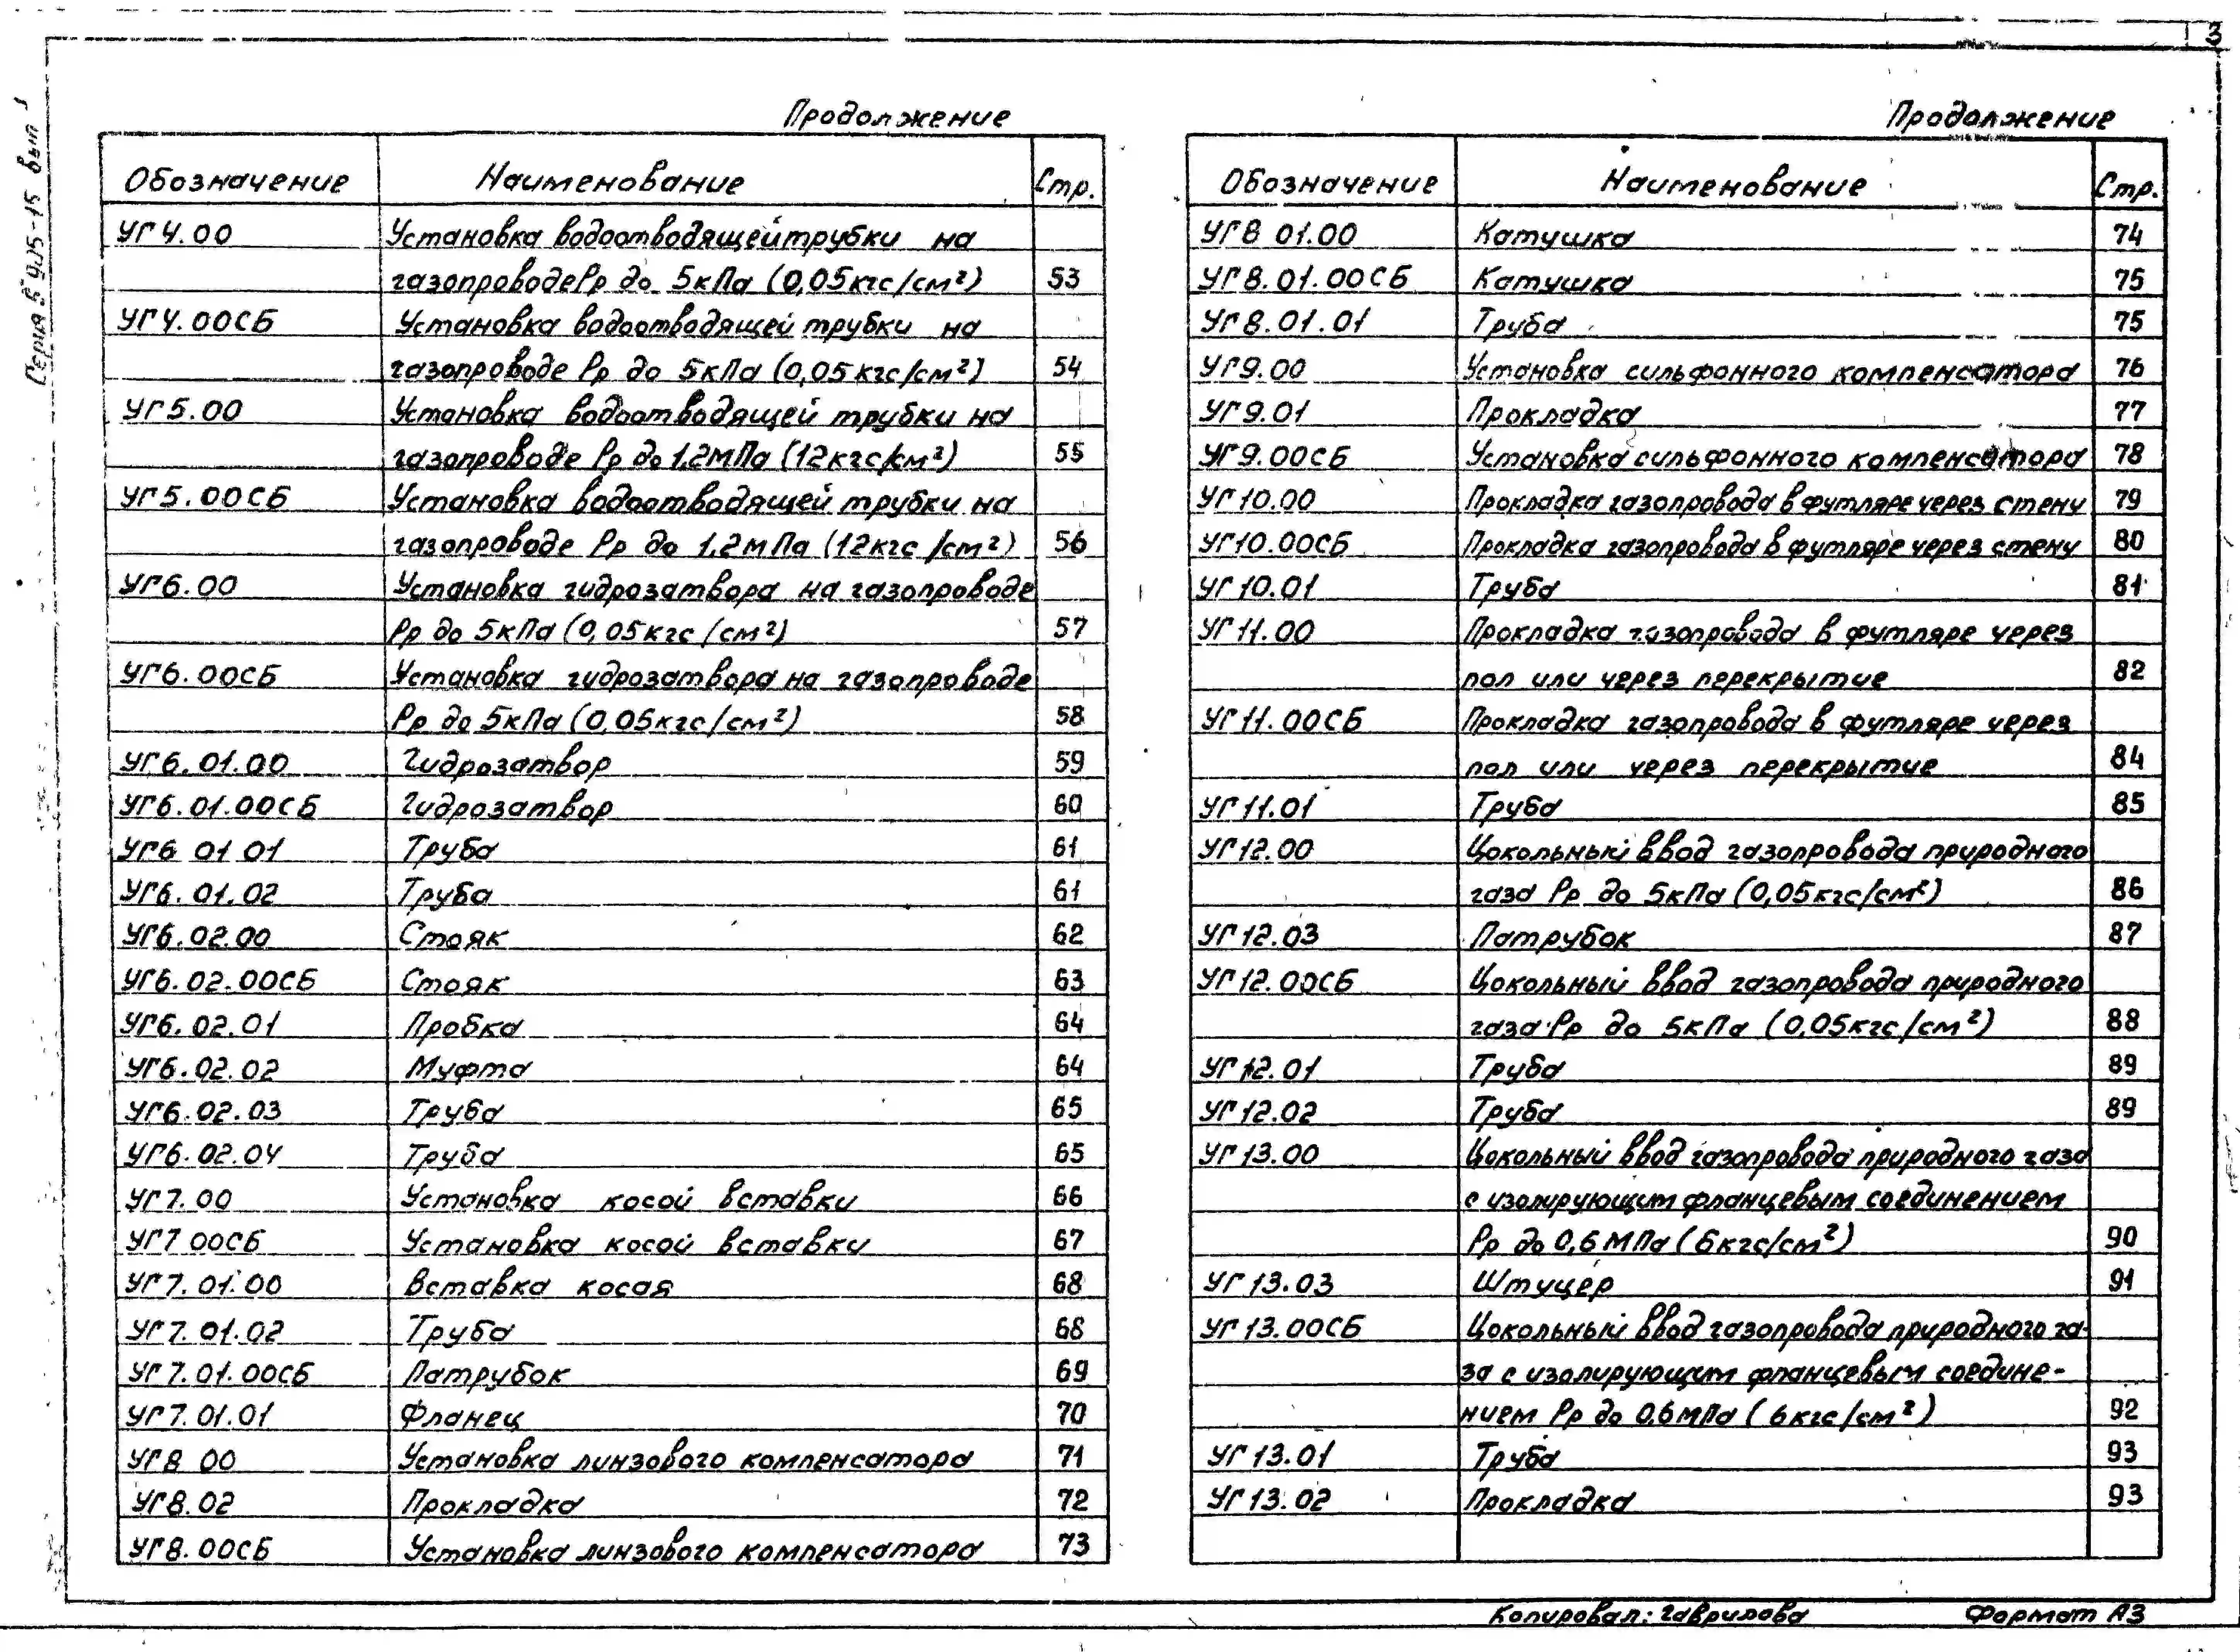 3
Серия 5.905-15 вып 1
Продолжение
Обозначение Наименование Стр.
УГ4.00 Установка водоотводящей трубки на
газопроводе Pp до 5кПа (0,05кгс/см²) 53
УГ4.00СБ Установка водоотводящей трубки на
газопроводе Pp до 5кПа (0,05кгс/см²) 54
УГ5.00 Установка водоотводящей трубки на
газопроводе Pp до 1,2МПа (12кгс/см²) 55
УГ5.00СБ Установка водоотводящей трубки на
газопроводе Pp до 1,2мПа (12кгс/см²) 56
УГ6.00 Установка гидрозатвора на газопроводе
Pp до 5кПа (0,05кгс/см²) 57
УГ6.00СБ Установка гидрозатвора на газопроводе
Pp до 5кПа (0,05кгс/см²) 58
УГ6.01.00 Гидрозатвор 59
УГ6.01.00СБ Гидрозатвор 60
УГ6 01 01 Труба 61
УГ6.01.02 Труба 61
УГ6.02.00 Стояк 62
УГ6.02.00СБ Стояк 63
УГ6.02.01 Пробка 64
УГ6.02.02 Муфта 64
УГ6.02.03 Труба 65
УГ6.02.04 Труба 65
УГ7.00 Установка косой вставки 66
УГ7 00СБ Установка косой вставки 67
УГ7.01.00 Вставка косая 68
УГ7.01.02 Труба 68
УГ7.01.00СБ Патрубок 69
УГ7.01.01 Фланец 70
УГ8 00 Установка линзового компенсатора 71
УГ8.02 Прокладка 72
УГ8.00СБ Установка линзового компенсатора 73
Продолжение
Обозначение Наименование Стр.
УГ8 01.00 Катушка 74
УГ8.01.00СБ Катушка 75
УГ8.01.01 Труба 75
УГ9.00 Установка сильфонного компенсатора 76
УГ9.01 Прокладка 77
УГ9.00СБ Установка сильфонного компенсатора 78
УГ10.00 Прокладка газопровода в футляре через стену 79
УГ10.00СБ Прокладка газопровода в футляре через стену 80
УГ10.01 Труба 81
УГ11.00 Прокладка газопровода в футляре через
пол или через перекрытие 82
УГ11.00СБ Прокладка газопровода в футляре через
пол или через перекрытие 84
УГ11.01 Труба 85
УГ12.00 Цокольный ввод газопровода природного
газа Pp до 5кПа (0,05кгс/см²) 86
УГ12.03 Патрубок 87
УГ12.00СБ Цокольный ввод газопровода природного
газа Pp до 5кПа (0,05кгс/см²) 88
УГ12.01 Труба 89
УГ12.02 Труба 89
УГ13.00 Цокольный ввод газопровода природного газа
с изолирующим фланцевым соединением
Pp до 0,6МПа (6кгс/см²) 90
УГ13.03 Штуцер 91
УГ13.00СБ Цокольный ввод газопровода природного га-
за с изолирующим фланцевым соедине-
нием Pp до 0.6мПа (6кгс/см²) 92
УГ13.01 Труба 93
УГ13.02 Прокладка 93
Копировал: Гаврилова Формат А3